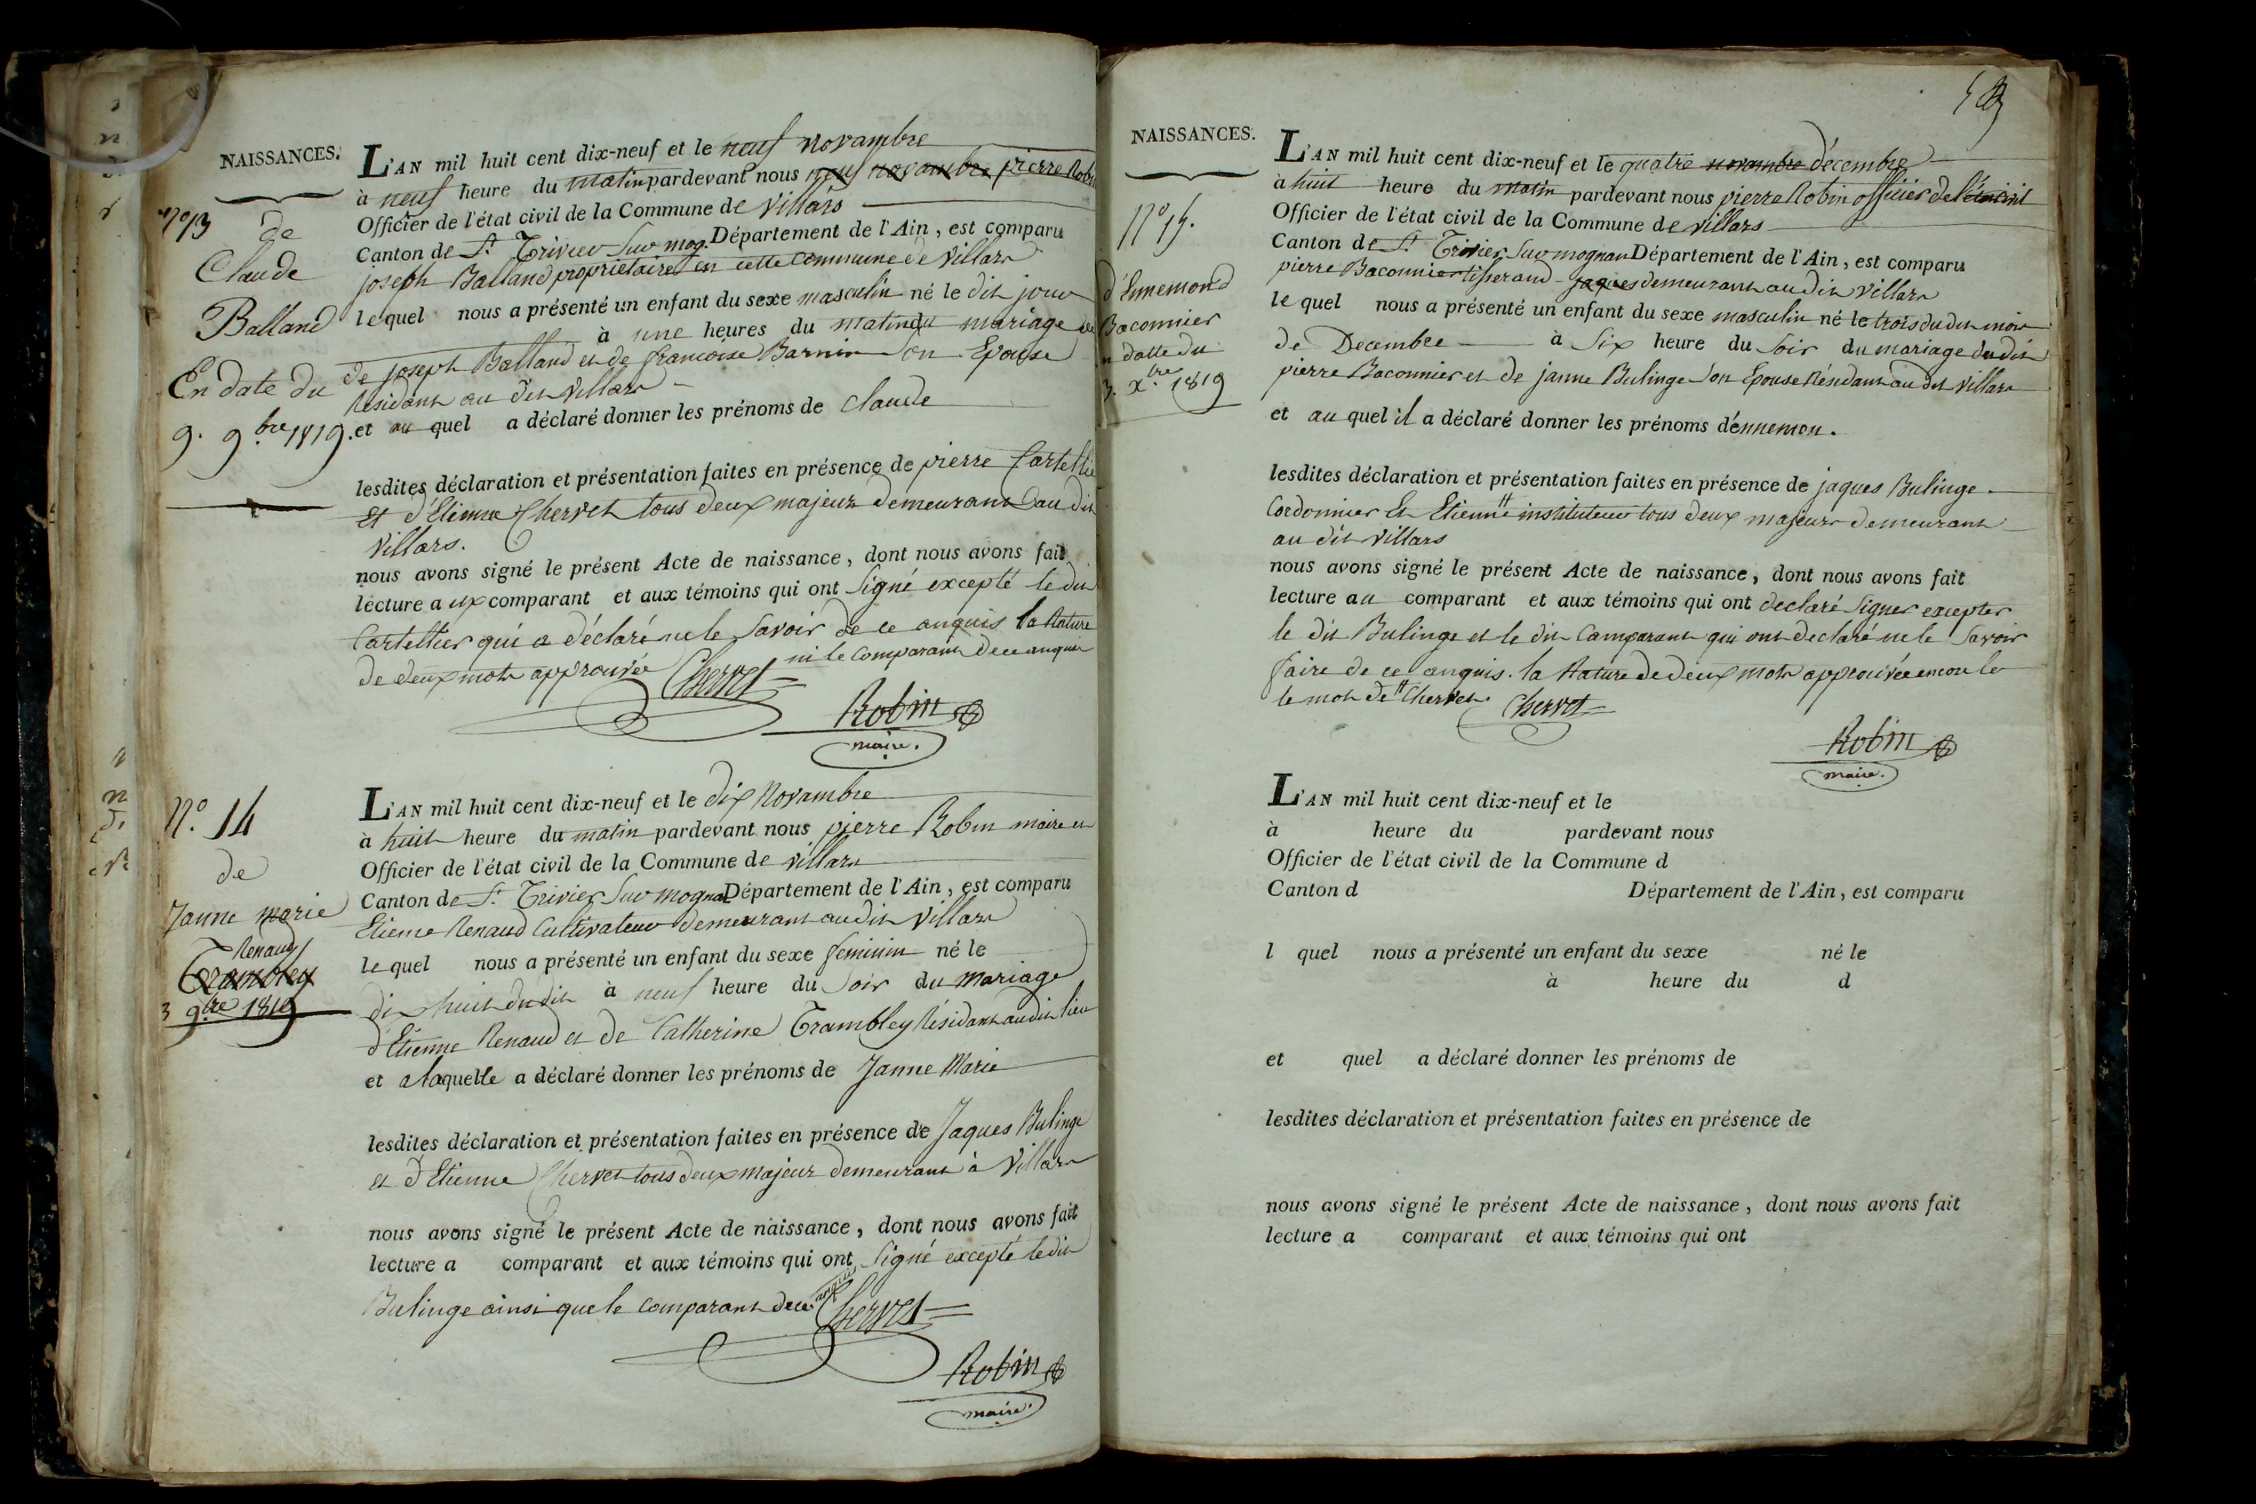 NAISSANCES.
n° 13
de
Claude
Balland
En date du
9. 9.bre 1819.
L'AN mil huit cent dix-neuf et le neuf novambre
à neuf heure du matin pardevant nous neuf novambre pierre Robin
Officier de l'état civil de la Commune de Villars
Canton de St. Trivier Sur mog. Département de l'Ain, est comparu
joseph Balland propriétaire en cette commune de Villars
le quel nous a présenté un enfant du sexe masculin né le dit jour
à une heures du matin du mariage
de joseph Balland et de francoise Barnin son Epouse
Résidant au dit Villars
et au quel a déclaré donner les prénoms de Claude
lesdites déclaration et présentation faites en présence de pierre Cartellier
et d'Etienne Chervet tous deux majeur demeurant au dit
Villars.
nous avons signé le présent Acte de naissance, dont nous avons fait
lecture a ux comparant et aux témoins qui ont Signé excepté le dit
Cartellier qui a déclaré ne le Savoir de ce anquis la Rature
de deux mots approuvée ni le Comparant de ce anquis
Chervet
Robin
maire.
N°. 14
de
Janne marie
Renaud
Trambley
3 9bre 1819
L'AN mil huit cent dix-neuf et le dix Novambre
à huit heure du matin pardevant nous pierre Robin maire et
Officier de l'état civil de la Commune de Villars
Canton de St. Trivier Sur mognan Département de l'Ain, est comparu
Etienne Renaud Cultivateur demeurant au dit Villars
le quel nous a présenté un enfant du sexe feminin né le
dix huit du dit à neuf heure du Soir du mariage
d'Etienne Renaud et de Catherine Trambley Résidant au dit lieu
et a laquelle a déclaré donner les prénoms de Janne Marie
lesdites déclaration et présentation faites en présence de Jaques Bulinge
et d'Etienne Chervet tous deux majeur demeurant à Villars
nous avons signé le présent Acte de naissance, dont nous avons fait
lecture a comparant et aux témoins qui ont Signé excepté le dit
Bulinge ainsi que le comparant de ce anquis
Chervet
Robin
maire.
NAISSANCES.
N° 15.
d'Ennemond
Baconnier
en datte du
3. Xbre 1819
L'AN mil huit cent dix-neuf et le quatre novembre décembre
à huit heure du matin pardevant nous pierre Robin officier de l'état civil
Officier de l'état civil de la Commune de Villars
Canton de St. Trivier Sur mognan Département de l'Ain, est comparu
pierre Baconnier tisserand Jaques demeurant au dit Villars
le quel nous a présenté un enfant du sexe masculin né le trois du dit mois
de Decembre à Six heure du Soir du mariage du dit
pierre Baconnier et de janne Bulinge son Epouse Résidant au dit Villars
et au quel il a déclaré donner les prénoms d'énnemon.
lesdites déclaration et présentation faites en présence de jaques Bulinge
Cordonnier Et Etienne # instituteur tous deux majeurs demeurant
au dit Villars
nous avons signé le présent Acte de naissance, dont nous avons fait
lecture au comparant et aux témoins qui ont declaré Signer excepter
le dit Bulinge et le dit Comparant qui ont declaré ne le Savoir
faire de ce anquis. la Rature de deux mots approuvée encore le
le mot de # Chervet.
Chervet
Robin
maire.
L'AN mil huit cent dix-neuf et le
à heure du pardevant nous
Officier de l'état civil de la Commune d
Canton d Département de l'Ain, est comparu
l quel nous a présenté un enfant du sexe né le
à heure du d
et quel a déclaré donner les prénoms de
lesdites déclaration et présentation faites en présence de
nous avons signé le présent Acte de naissance, dont nous avons fait
lecture a comparant et aux témoins qui ont